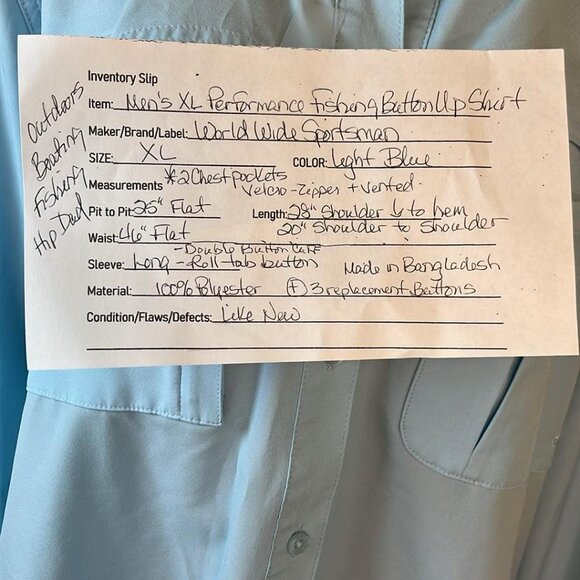 Inventory Slip
Item: Men's XL Performance Fishing Button Up Shirt
Maker/Brand/Label: World Wide Sportsman
SIZE: XL COLOR: Light Blue
Measurements *2 Chest pockets
Velcro - Zipper + Vented.
Pit to Pit: 26" Flat Length: 28" Shoulder to hem
20" Shoulder to Shoulder
Waist: 46" Flat
- Double Button Cuff
Sleeve: Long - Roll-tab button Made in Bangladesh
Material: 100% Polyester (+) 3 replacement Buttons
Condition/Flaws/Defects: Like New
Outdoors
Boating
Fishing
Hip Dad